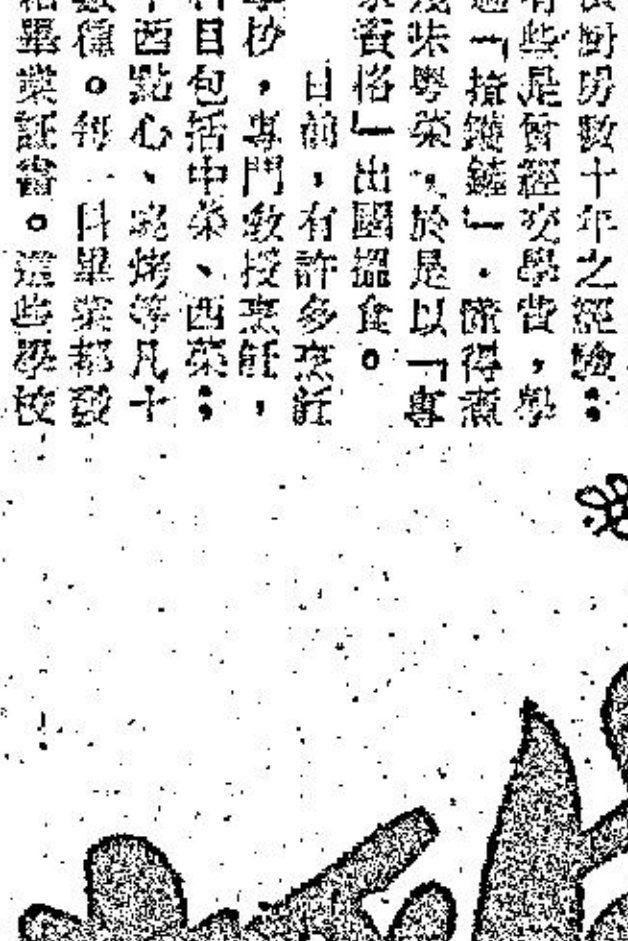 廚房數十年之經驗；
有些是曾經交學費，學
過「揸鑊鏟」，懂得煮
幾味粵菜，於是以「專
家資格」出國搵食。
目前，有許多烹飪
學校，專門敎授烹飪，
科目包括中菜、西菜；
中西點心、燒烤等凡十
數種。每一科畢業都發
給畢業証書。這些學校